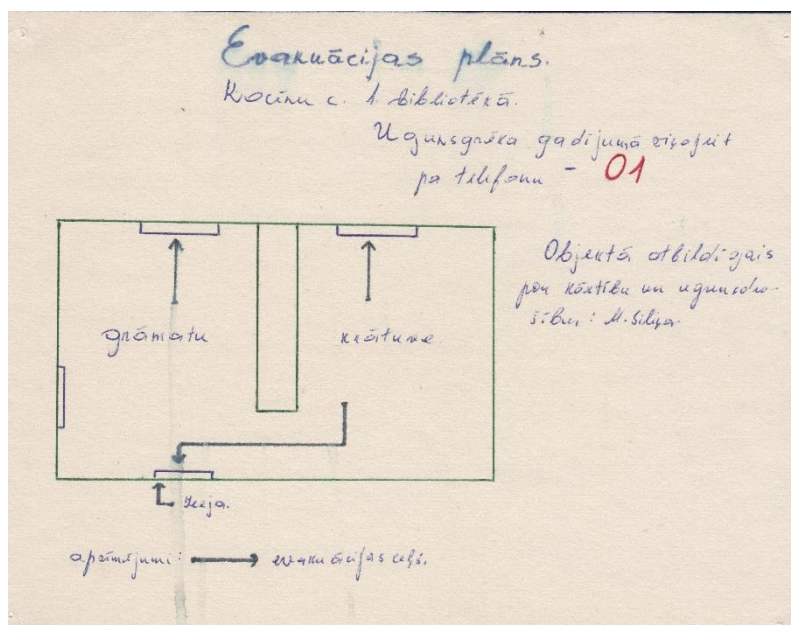 Evakuācijas plāns.
Kocēnu c. 1. bibliotēkā.
Ugunsgrēka gadījumā ziņojiet
pa telefonu - 01
Objektā atbildīgais
par kārtību un ugunsdro-
šību: M. Siliņa.
grāmatu krātuve.
Ieeja.
apzīmējumi: evakuācijas ceļš.